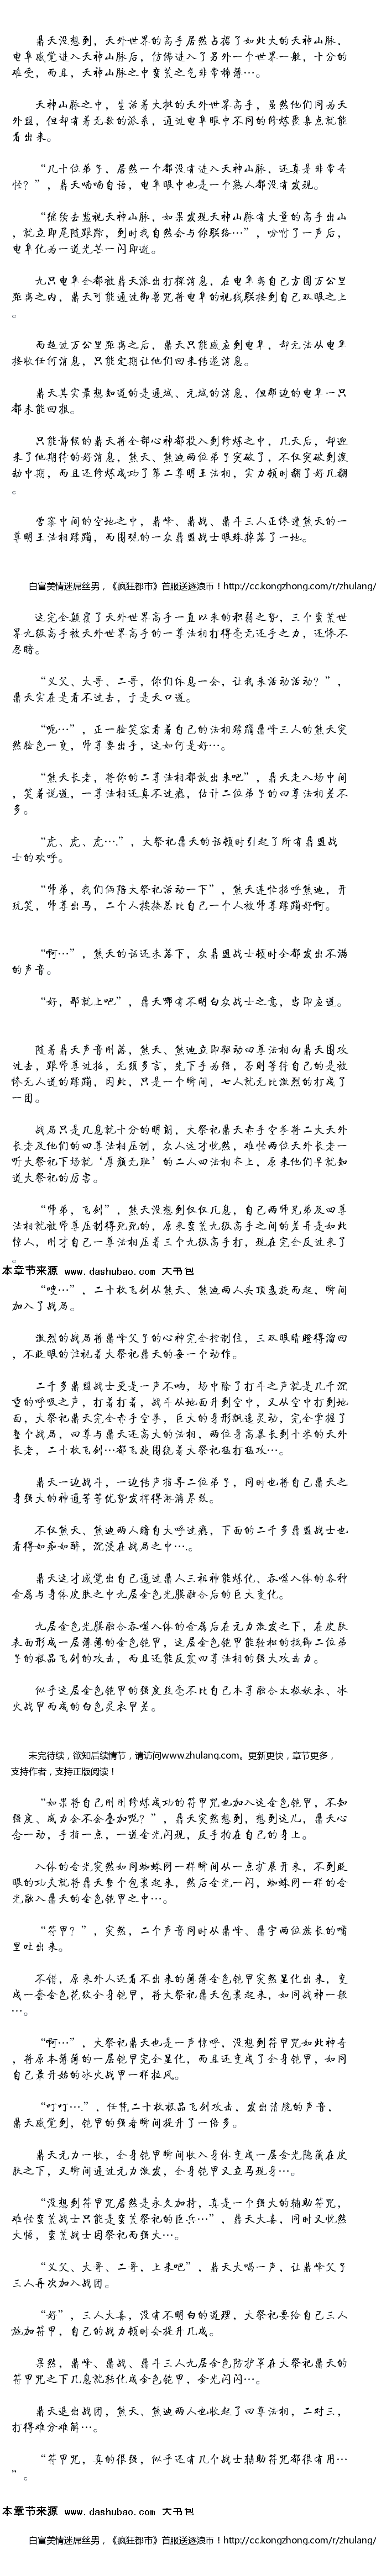 鼎天没想到，天外世界的高手居然占据了如此大的天神山脉，
电阜感觉进入天神山脉后，仿佛进入了另外一个世界一般，十分的
难受，而且，天神山脉之中蛮荒之气非常稀薄…。
天神山脉之中，生活着大批的天外世界高手，虽然他们同为天
外盟，但却有着无数的派系，通过电阜眼中不同的修炼聚集点就能
看出来。
“几十位弟子，居然一个都没有进入天神山脉，还真是非常奇
怪？”，鼎天喃喃自语，电阜眼中也是一个熟人都没有发现。
“继续去监视天神山脉，如果发现天神山脉有大量的高手出山
，就立即尾随跟踪，到时我自然会与你联络…”，吩咐了一声后，
电阜化为一道光芒一闪即逝。
九只电阜全都被鼎天派出打探消息，在电阜离自己方圆万公里
距离之内，鼎天可能通过御兽咒将电阜的视线联接到自己双眼之上
。
而超过万公里距离之后，鼎天只能感应到电阜，却无法从电阜
接收任何消息，只能定期让他们回来传递消息。
鼎天其实最想知道的是通城、元城的消息，但那边的电阜一只
都未能回报。
只能静候的鼎天将全部心神都投入到修炼之中，几天后，却迎
来了他期待的好消息，熊天、熊迪两位弟子突破了，不仅突破到渡
劫中期，而且还修炼成功了第二尊明王法相，实力顿时翻了好几翻
。
营寨中间的空地之中，鼎峰、鼎战、鼎斗三人正惨遭熊天的一
尊明王法相蹂躏，而围观的一众鼎盟战士眼珠掉落了一地。
白富美情迷屌丝男，《疯狂都市》首服送逐浪币！http://cc.kongzhong.com/r/zhulang/
这完全颠覆了天外世界高手一直以来的积弱之势，三个蛮荒世
界九级高手被天外世界高手的一尊法相打得毫无还手之力，还惨不
忍睹。
“义父、大哥、二哥，你们休息一会，让我来活动活动？”，
鼎天实在是看不过去，于是天口道。
“呃…”，正一脸笑容看着自己的法相蹂躏鼎峰三人的熊天突
然脸色一变，师尊要出手，这如何是好…。
“熊天长老，将你的二尊法相都放出来吧”，鼎天走入场中间
，笑着说道，一尊法相还真不过瘾，估计二位弟子的四尊法相差不
多。
“虎、虎、虎…”，大祭祀鼎天的话顿时引起了所有鼎盟战
士的欢呼。
“师弟，我们俩陪大祭祀活动一下”，熊天连忙招呼熊迪，开
玩笑，师尊出马，二个人挨揍总比自己一个人被师尊蹂躏好啊。
“啊…”，熊天的话还未落下，众鼎盟战士顿时全都发出不满
的声音。
“好，那就上吧”，鼎天哪有不明白众战士之意，当即应道。
随着鼎天声音刚落，熊天、熊迪立即驱动四尊法相向鼎天围攻
过去，跟师尊过招，无须多言，先下手为强，否则等待自己的是被
惨无人道的蹂躏，因此，只是一个瞬间，七人就无比激烈的打成了
一团。
战局只是几息就十分的明朗，大祭祀鼎天赤手空拳将二大天外
长老及他们的四尊法相压制，众人这才恍然，难怪两位天外长老一
听大祭祀下场就‘厚颜无耻’的二人四法相齐上，原来他们早就知
道大祭祀的厉害。
“师弟，飞剑”，熊天没想到仅仅几息，自己两师兄弟及四尊
法相就被师尊压制得死死的，原来蛮荒九级高手之间的差异是如此
惊人，刚才自己一尊法相压着三个九级高手打，现在完全反过来了
。
本章节来源 www.dashubao.com 大书包
“嗖…”，二十枚飞剑从熊天、熊迪两人头顶盘旋而起，瞬间
加入了战局。
激烈的战局将鼎峰父子的心神完全控制住，三双眼睛瞪得溜回
，不眨眼的注视着大祭祀鼎天的每一个动作。
二千多鼎盟战士更是一声不响，场中除了打斗之声就是几千沉
重的呼吸之声，打着打着，战斗从地面升到空中，又从空中打到地
面，大祭祀鼎天完全赤手空拳，巨大的身形飘逸灵动，完全掌握了
整个战局，四尊与鼎天还高大的法相，两位身高暴长到十米的天外
长老，二十枚飞剑…都飞旋围绕着大祭祀猛打猛攻…。
鼎天一边战斗，一边传声指导二位弟子，同时也将自己鼎天之
身强大的神通等等优势发挥得淋漓尽致。
不仅熊天、熊迪两人暗自大呼过瘾，下面的二千多鼎盟战士也
看得如痴如醉，沉浸在战局之中…。
鼎天这才感觉出自己通过鼎人三祖神能炼化、吞噬入体的各种
金属与身体皮肤之中九层金色光膜融合后的巨大变化。
九层金色光膜融合吞噬入体的金属后在元力激发之下，在皮肤
表面形成一层薄薄的金色铠甲，这层金色铠甲能轻松的抵御二位弟
子的极品飞剑的攻击，而且还能反震四尊法相的强大攻击力。
似乎这层金色铠甲的强度丝毫不比自己本尊融合太极妖衣、冰
火战甲而成的白色灵衣甲差。
未完待续，欲知后续情节，请访问www.zhulang.com。更新更快，章节更多，
支持作者，支持正版阅读！
“如果将自己刚刚修炼成功的符甲咒也加入这金色铠甲，不知
强度、威力会不会叠加呢？”，鼎天突然想到，想到这儿，鼎天心
念一动，手指一点，一道金光闪现，反手拍在自己的身上。
入体的金光突然如同蜘蛛网一样瞬间从一点扩展开来，不到眨
眼的功夫就将鼎天整个包裹起来，然后金光一闪，蜘蛛网一样的金
光融入鼎天的金色铠甲之中…。
“符甲？”，突然，二个声音同时从鼎峰、鼎宇两位族长的嘴
里吐出来。
不错，原来外人还看不出来的薄薄金色铠甲突然显化出来，变
成一套金色花纹全身铠甲，将大祭祀鼎天包裹起来，如同战神一般
…。
“啊…”，大祭祀鼎天也是一声惊呼，没想到符甲咒如此神奇
，将原本薄薄的一层铠甲完全显化，而且还变成了全身铠甲，如同
自己最开始的冰火战甲一样拉风。
“叮叮…”，任凭二十枚极品飞剑攻击，发出清脆的声音，
鼎天感觉到，铠甲的强者瞬间提升了一倍多。
鼎天元力一收，全身铠甲瞬间收入身体变成一层金光隐藏在皮
肤之下，又瞬间通过元力激发，全身铠甲又立马现身…。
“没想到符甲咒居然是永久加持，真是一个强大的辅助符咒，
难怪蛮荒战士只能是蛮荒祭祀的臣兵…”，鼎天大喜，同时又恍然
大悟，蛮荒战士因祭祀而强大…。
“义父、大哥、二哥，上来吧”，鼎天大喝一声，让鼎峰父子
三人再次加入战团。
“好”，三人大喜，没有不明白的道理，大祭祀要给自己三人
施加符甲，自己的战力顿时会提升几成。
果然，鼎峰、鼎战、鼎斗三人九层金色防护罩在大祭祀鼎天的
符甲咒之下几息就转化成金色铠甲，金光闪闪…。
鼎天退出战团，熊天、熊迪两人也收起了四尊法相，二对三，
打得难分难解…。
“符甲咒，真的很强，似乎还有几个战士辅助符咒都很有用…
”。
本章节来源 www.dashubao.com 大书包
白富美情迷屌丝男，《疯狂都市》首服送逐浪币！http://cc.kongzhong.com/r/zhulang/